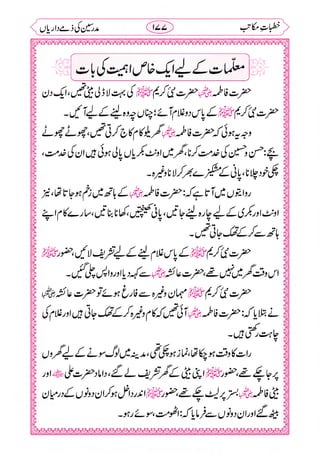 خطباتِ مکاتب ۱۷۷ مدرسین کی ذمے داریاں
معلّمات کے لیے ایک خاص اہمیت کی بات
حضرت فاطمہ رضی اللہ عنہا حضرت نبی کریم ﷺ کی بہت لاڈلی بیٹی تھیں، ایک دن
حضرت نبی کریم ﷺ کے پاس دو غلام آئے؛ چناں چہ وہ لینے کے لیے آئیں۔
وجہ یہ ہوئی کہ حضرت فاطمہ رضی اللہ عنہا گھریلو کام کاج کرتی تھیں، چھوٹے چھوٹے
بچے: حسن و حسین کی خدمت کرنا، گھر میں اونٹ بکریاں پالی ہوئی ہیں ان کی خدمت،
چکی چلانا، خود پانی کے مشکیزے بھر کر لانا وغیرہ۔
روایتوں میں آتا ہے کہ: حضرت فاطمہ رضی اللہ عنہا کے ہاتھ میں زخم ہو جاتا تھا، نیز،
اونٹ اور بکری کے لیے چارہ لینے جاتیں، پانی کھینچتیں، آٹا بناتیں، سارے کام اپنے
ہاتھ سے کر کے تھک جاتی تھیں۔
حضرت نبی کریم ﷺ کے پاس غلام لینے کے لیے تشریف لائیں، حضور ﷺ
اس وقت گھر میں نہیں تھے، حضرت عائشہ رضی اللہ عنہا سے کہہ دیا اور واپس چلی گئیں۔
حضرت نبی کریم ﷺ مہمان وغیرہ سے فارغ ہوئے تو حضرت عائشہ رضی اللہ عنہا
نے بتلایا کہ: حضرت فاطمہ آئی تھیں کہ کام وغیرہ کر کے تھک جاتی ہیں اور غلام کی
چاہت رکھتی ہیں۔
رات کا وقت ہو چکا تھا، نماز ہو چکی تھی، مدینہ میں لوگ سونے کے لیے گھروں
پر جا چکے تھے، حضور ﷺ اپنی بیٹی کے گھر تشریف لے گئے، داماد حضرت علی رضی اللہ عنہ اور
بیٹی فاطمہ رضی اللہ عنہا بستر پر لیٹ چکے تھے، حضور ﷺ اندر داخل ہو کر ان دونوں کے درمیان
بیٹھ گئے اور ان دونوں سے فرمایا کہ: اٹھو مت، سوئے رہو۔